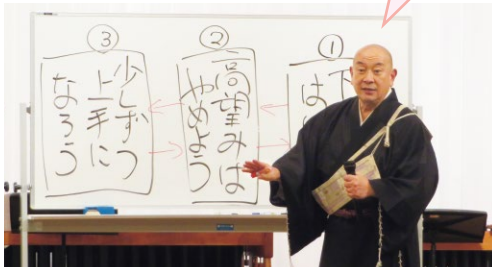 ①
下
は
②
高望みは
やめよう
③
少しずつ
上手に
なろう